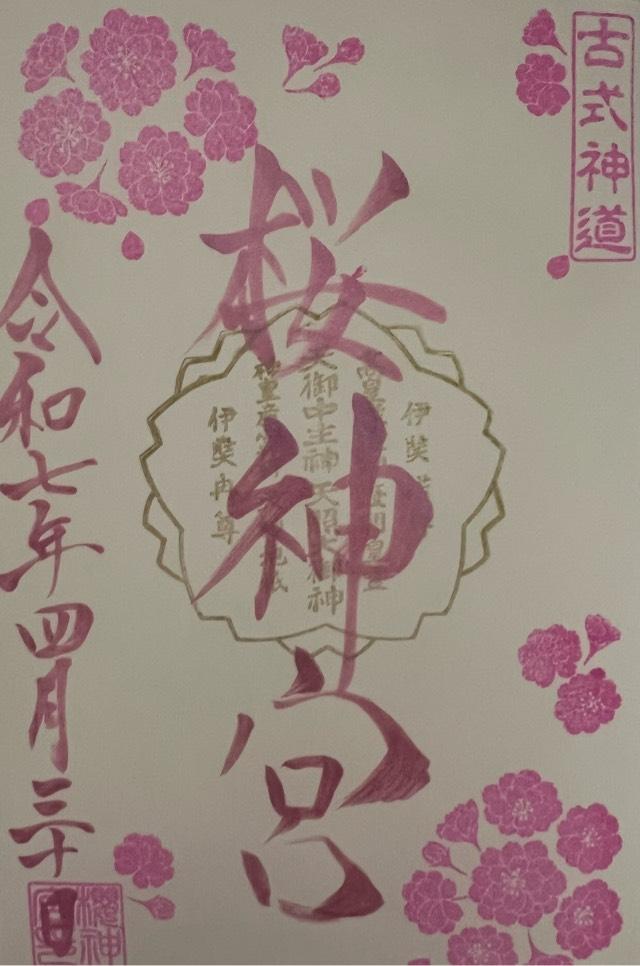 古式神道
桜神宮
伊奘
天御中主神 天照大御神
伊奘冉尊
令和七年四月三十日